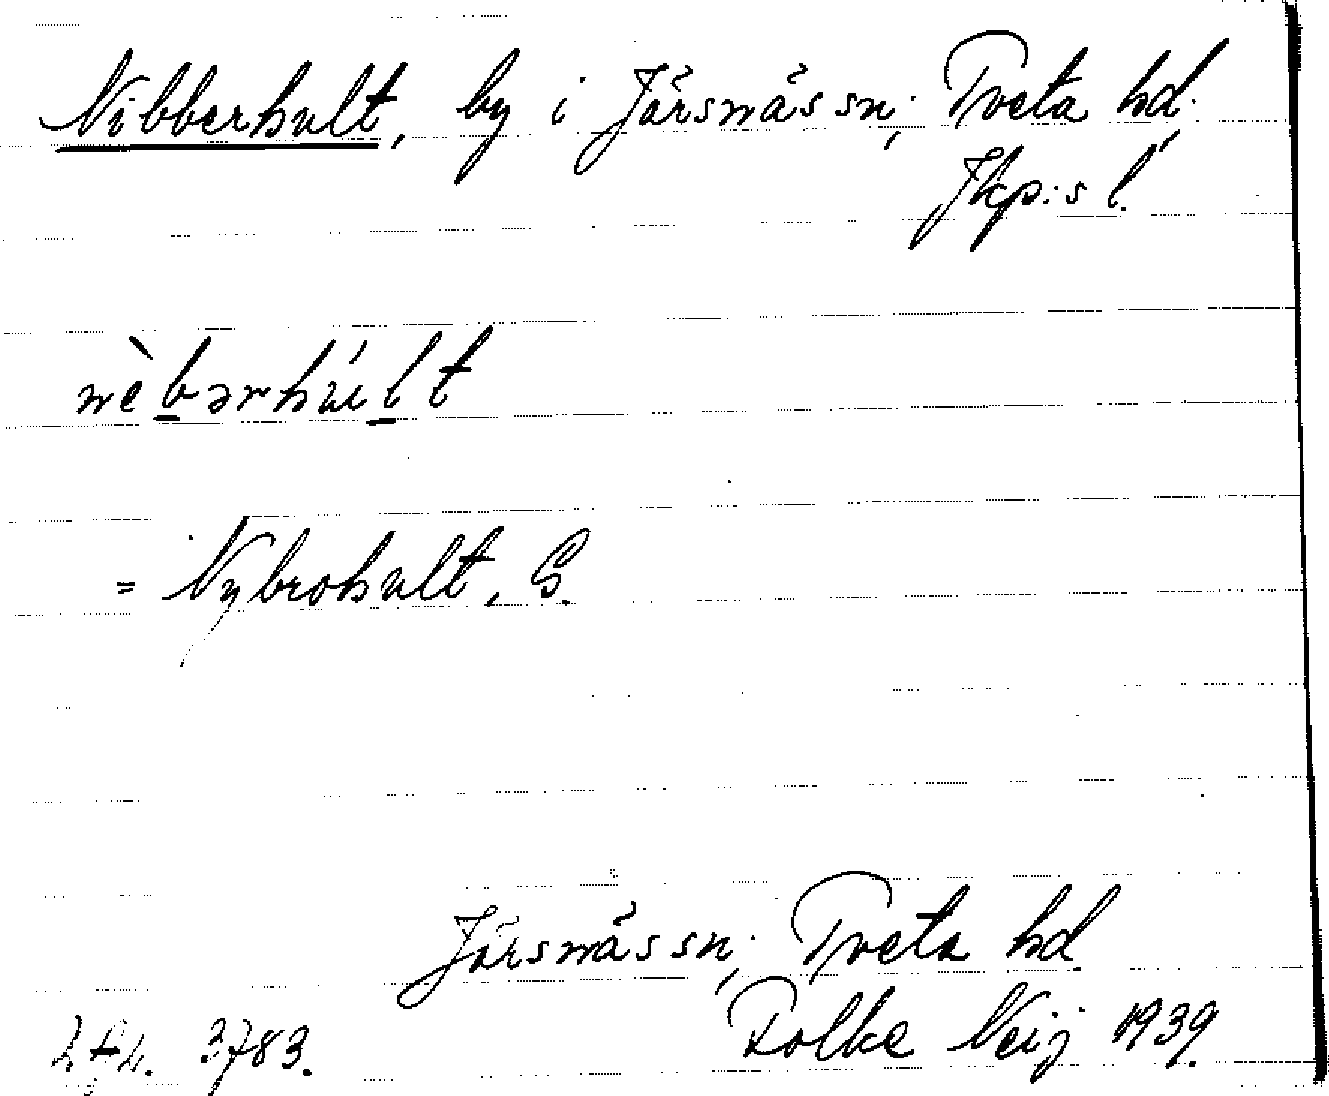 Nibberhult, by i Järsnäs sn; Tveta hd,
Jkp:s l.
nèbərhúlt
= Nybrohult, G.
Järsnäs sn; Tveta hd
Folke Neij 1939.
3783.